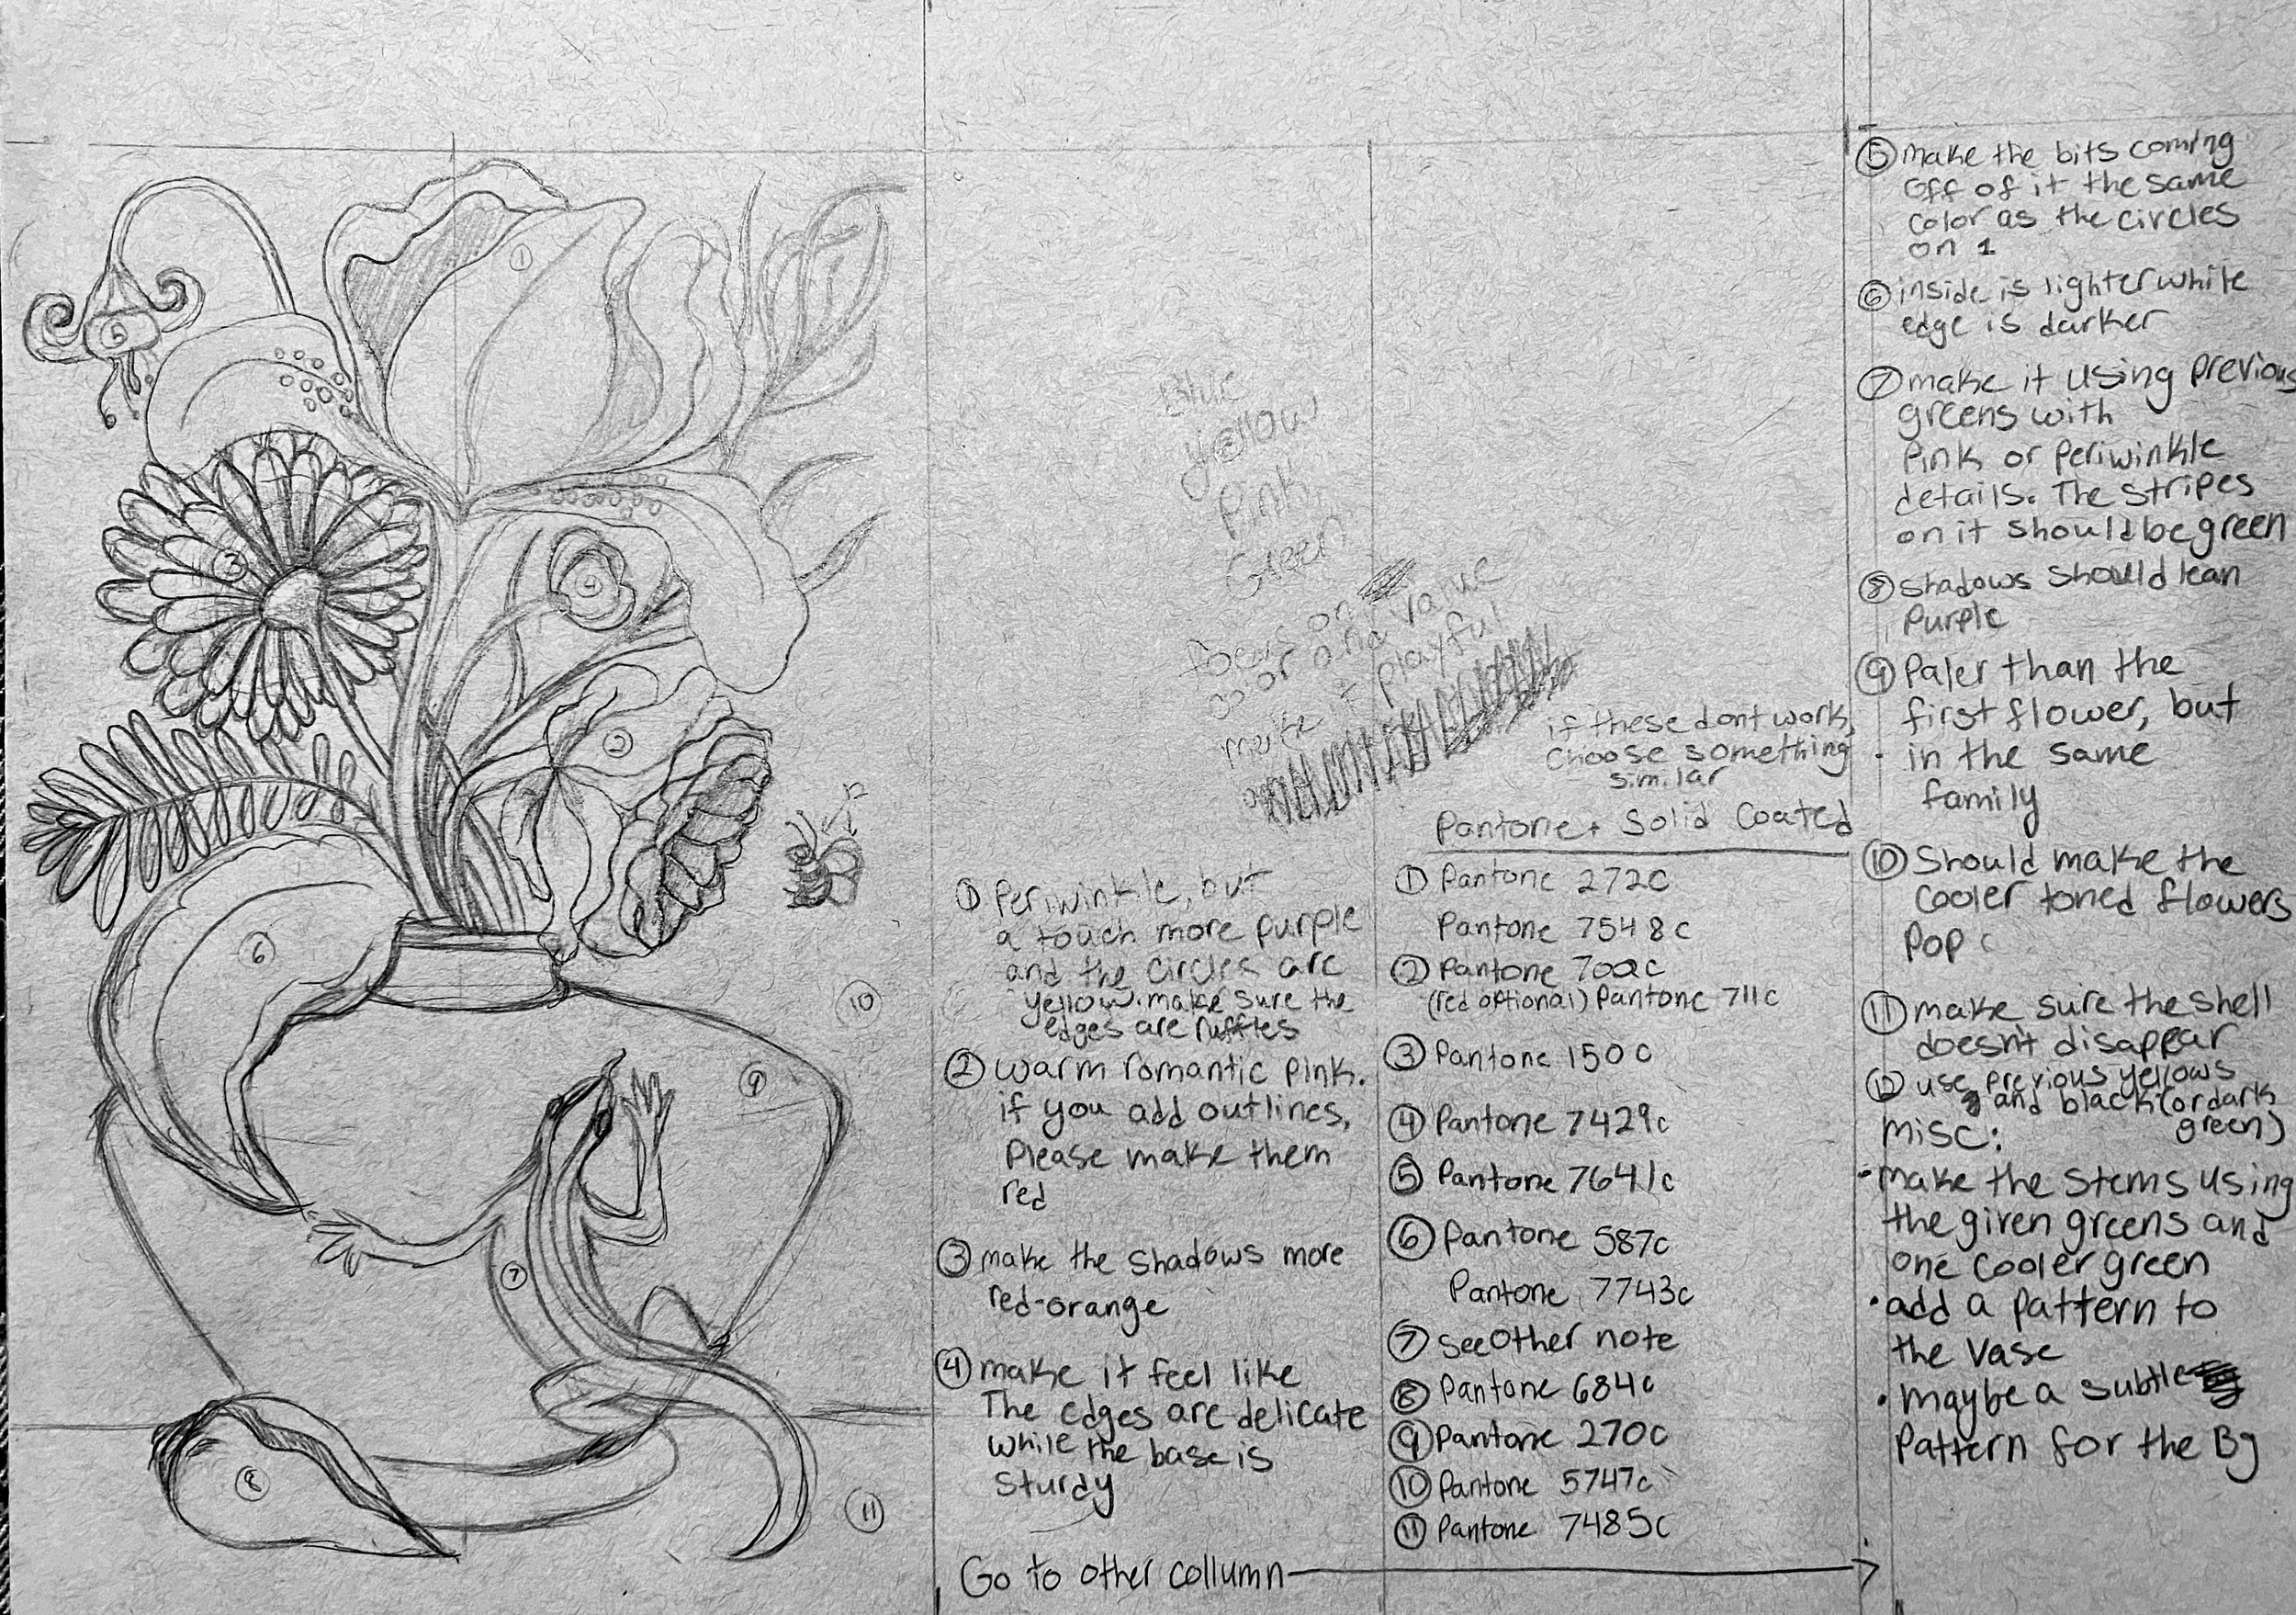 1
5
3
4
2
12
6
10
9
7
8
11
Blue
yellow
Pink
Green
focus on
color and value
make it playful
① Periwinkle, but
a touch more purple
and the circles are
yellow. make sure the
edges are ruffles
② warm romantic pink.
if you add outlines,
Please make them
red
③ make the shadows more
red-orange
④ make it feel like
The edges are delicate
while the base is
sturdy
Go to other collumn
if these dont work,
choose something
similar
Pantone + Solid Coated
① Pantone 272c
Pantone 7548c
② Pantone 702c
(red optional) Pantone 711c
③ Pantone 150c
④ Pantone 7429c
⑤ Pantone 7641c
⑥ Pantone 587c
Pantone 7743c
⑦ see other note
⑧ Pantone 684c
⑨ Pantone 270c
⑩ Pantone 5747c
⑪ Pantone 7485c
⑤ make the bits coming
off of it the same
color as the circles
on 1
⑥ inside is lighter while
edge is darker
⑦ make it using previous
greens with
Pink or periwinkle
details. The stripes
on it should be green
⑧ shadows should lean
Purple
⑨ Paler than the
first flower, but
in the same
family
⑩ Should make the
cooler toned flowers
Pop
⑪ make sure the shell
doesn't disappear
⑫ use previous yellows
and black (or dark
green)
Misc:
• make the stems using
the given greens and
one cooler green
• add a pattern to
the vase
• maybe a subtle
Pattern for the Bg